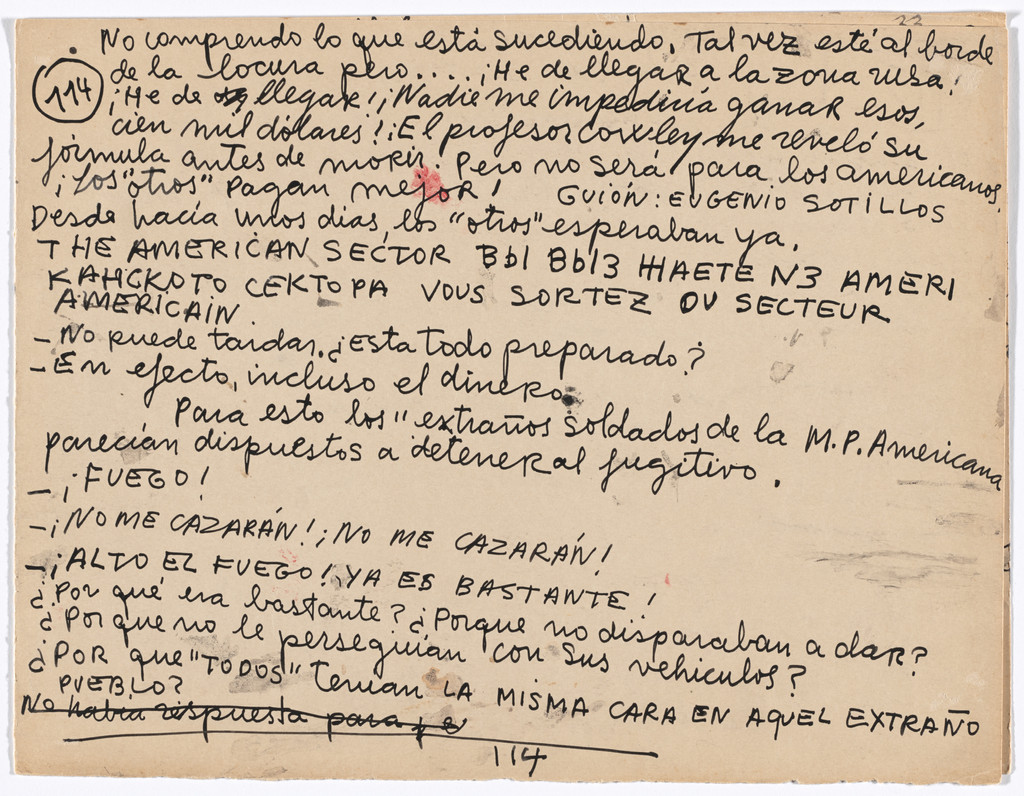 22
. No comprendo lo que está sucediendo. Tal vez esté al borde
114 de la locura pero.... ¡He de llegar a la zona rusa!
¡He de llegar! ¡Nadie me impedirá ganar esos,
cien mil dólares! ¡El profesor Cowley me reveló su
fórmula antes de morir. Pero no será para los americanos.
¡Los "otros" pagan mejor! GUIÓN: EUGENIO SOTILLOS
Desde hacía unos dias, los "otros" esperaban ya.
THE AMERICAN SECTOR ВЫ ВЫЗ ЖАЕТЕ N3 АМЕRI
КАНСКОТО СЕКТОРА VOUS SORTEZ DU SECTEUR
AMERICAIN
- No puede tardar. ¿Esta todo preparado?
- En efecto, incluso el dinero.
Para esto los "extraños soldados de la M.P. Americana
parecían dispuestos a detener al fugitivo.
- ¡FUEGO!
- ¡NO ME CAZARÁN! ¡NO ME CAZARÁN!
- ¡ALTO EL FUEGO! YA ES BASTANTE!
¿Por qué era bastante? ¿Porque no disparaban a dar?
¿Porque no le perseguían con sus vehículos?
¿POR que "TODOS" tenían LA MISMA CARA EN AQUEL EXTRAÑO
PUEBLO?
No había respuesta para
114